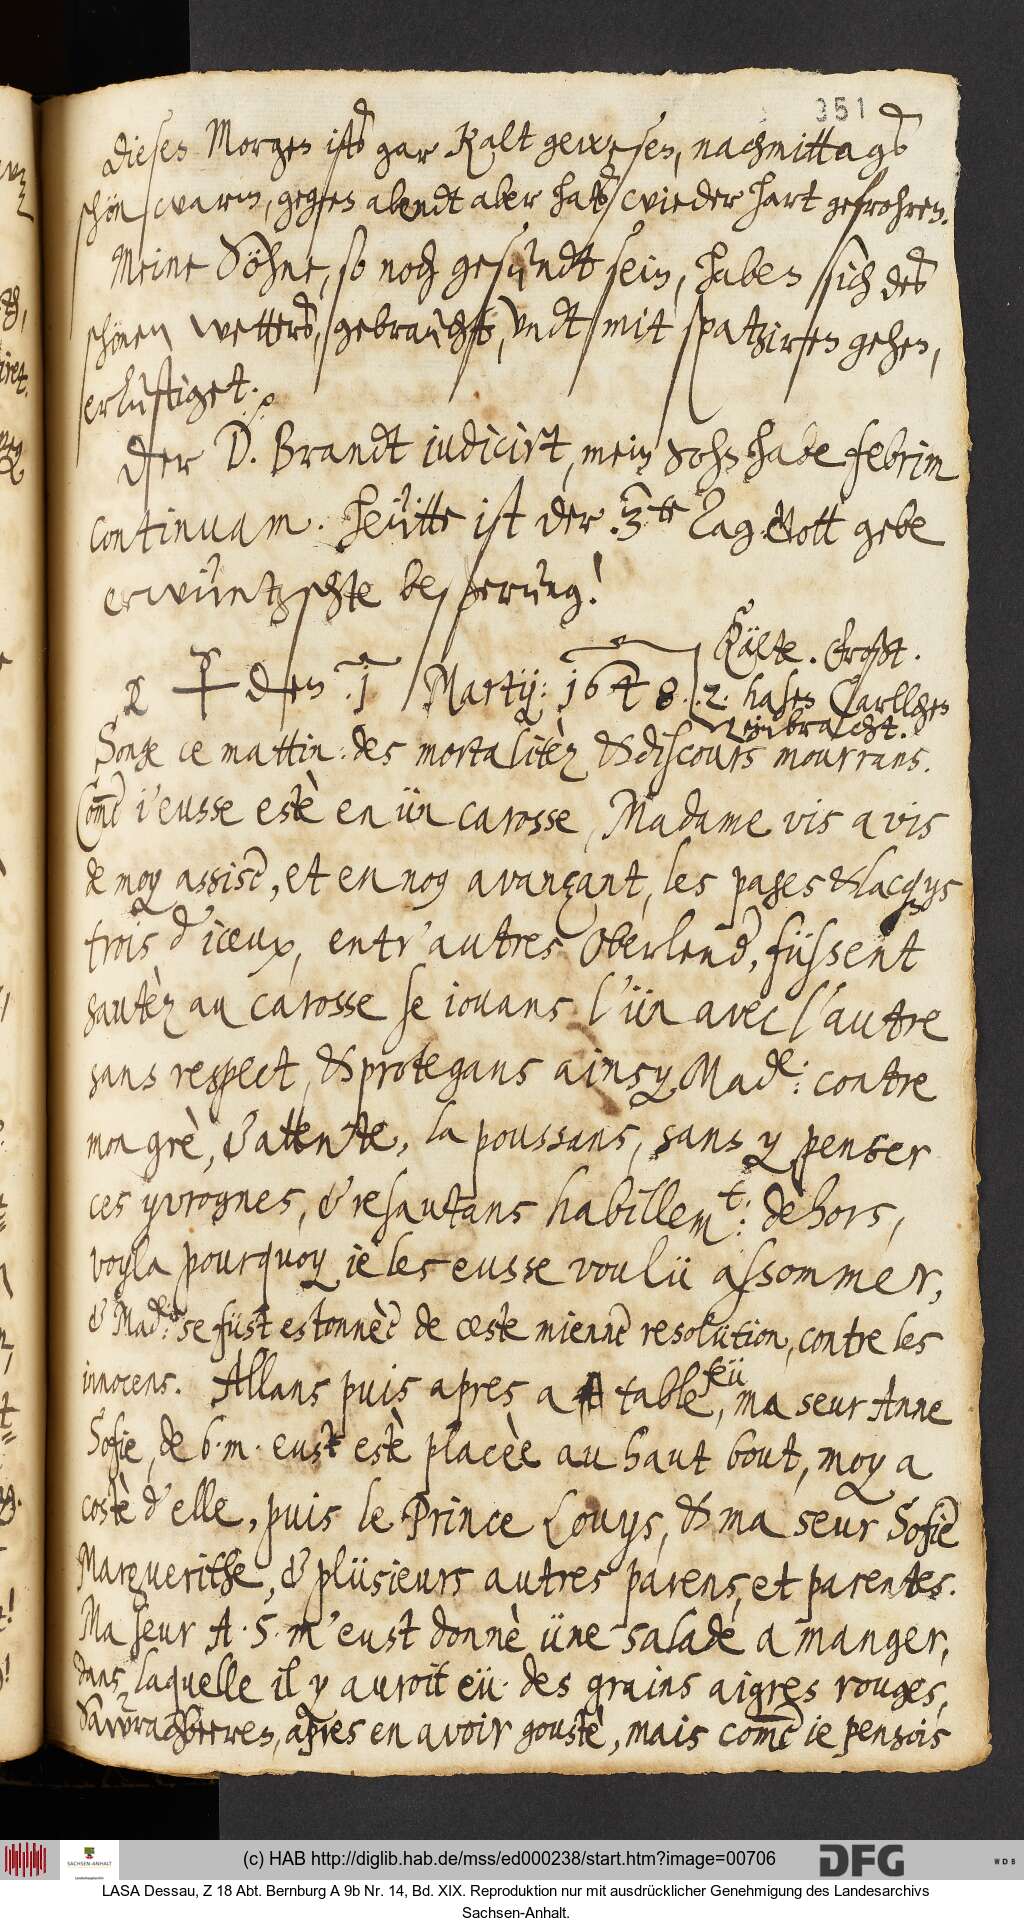 351
Dieses Morgen ists gar kalt gewesen, nachmittags
schön warm, gegen abendt aber hats wieder hart gefrohren.
Meine Söhne, so noch gesundt sein, haben sich des
schönen wetters, gebraucht, vndt mit spatziren gehen,
erlustiget.
Der D. Brandt iudicirt, mein Sohn habe febrim
continuam. heütte ist der 3te Tag. Gott gebe
erwüntzschte besserung!
Kälte. Frost.
den 1 Martij: 1648. 2 hasen Carllchen
einbracht.
Songe ce mattin: des mortalitèz & discours mourrans.
Comē i'eusse estè en ün carosse, Madame vis a vis
de moy assisē, et en noq avançant, les pages & lacqys
trois d'iceux, entr'autres Oberlend, füssent
sautèz au carosse se iouans l'ün avec l'autre
sans respect, & protegans ainsy Made: contre
mon grè, & attente, la poussans, sans y penser
ces yvrognes, & resautans habillemt: dehors,
voyla pourquoy ie les eusse voulü assommer,
& Made: se füst estonnèē de ceste miennē resolütion, contre les
innocens. Allans puis apres a table, feü ma seur Anne
Sofie, de b. m. eust estè placèe au haut bout, moy a
costè d'elle, puis le Prince Louys, & ma seur Sofiē
Margueritse, & plüsieurs autres parens, et parentes.
Ma seur A. S. m'eust donnè üne salade a manger,
dans laquelle il y auroit eü des grains aigres rouges,
Sawrachbeeren, apres en avoir goustè, mais comē ie pensois
(c) HAB http://diglib.hab.de/mss/ed000238/start.htm?image=00706
SACHSEN-ANHALT
DFG
WDB
LASA Dessau, Z 18 Abt. Bernburg A 9b Nr. 14, Bd. XIX. Reproduktion nur mit ausdrücklicher Genehmigung des Landesarchivs
Sachsen-Anhalt.